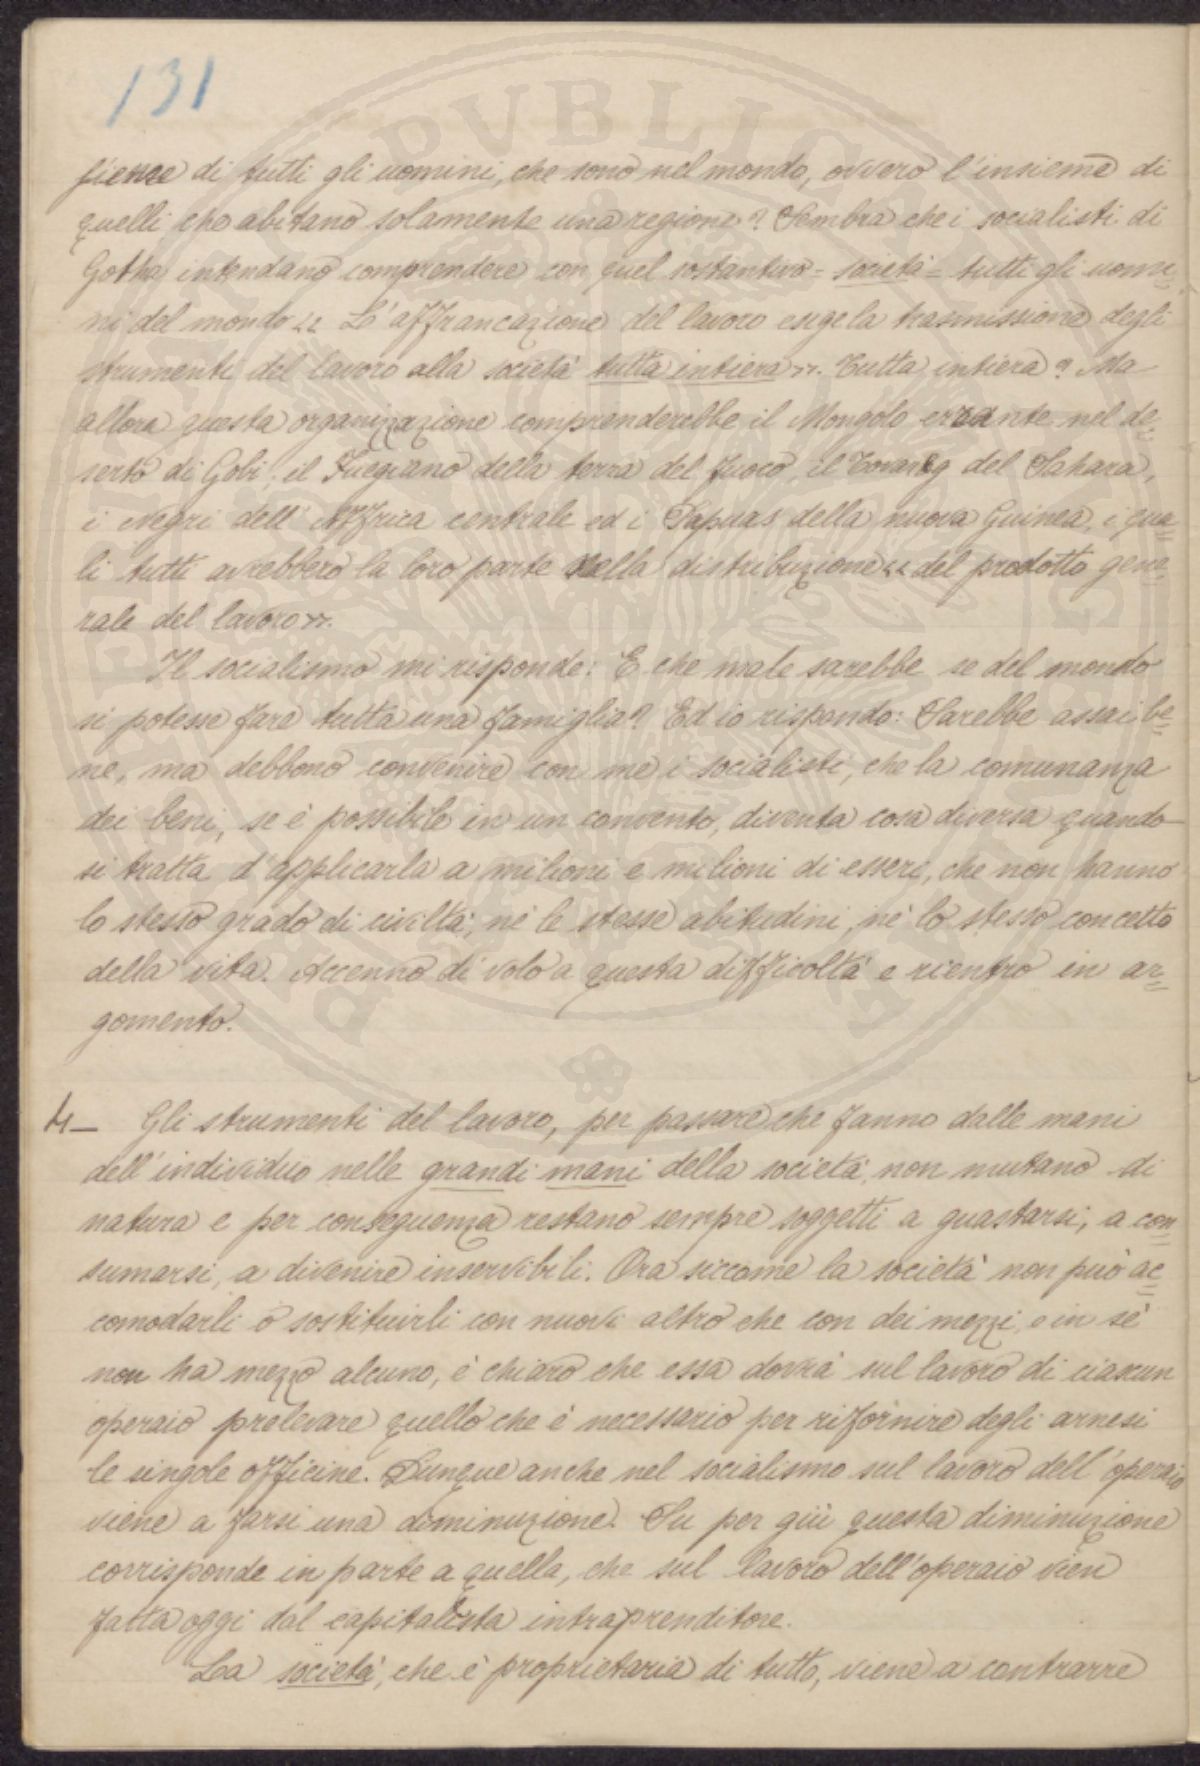 131
fieme di tutti gli uomini, che sono nel mondo, ovvero l'insieme di
quelli che abitano solamente una regione? Sembra che i socialisti di
Gotha intendano comprendere con quel sostantivo = società = tutti gli uomi=
ni del mondo « L'affrancazione del lavoro esige la trasmissione degli
strumenti del lavoro alla società tutta intiera ». Tutta intiera? Ma
allora questa organizzazione comprenderebbe il Mongolo errante nel de=
serto di Gobi, il Fuegiano della terra del fuoco, il Touareg del Sahara,
i Negri dell'Affrica centrale ed i Papuas della nuova Guinea, i qua=
li tutti avrebbero la loro parte nella distribuzione « del prodotto gene=
rale del lavoro ».
Il socialismo mi risponde: E che male sarebbe se del mondo
si potesse fare tutta una famiglia? Ed io rispondo: Sarebbe assai be=
ne, ma debbono convenire con me i socialisti, che la comunanza
dei beni, se è possibile in un convento, diventa cosa diversa quando
si tratta d'applicarla a milioni e milioni di esseri, che non hanno
lo stesso grado di civiltà, nè le stesse abitudini, nè lo stesso concetto
della vita. Accenno di volo a questa difficoltà e rientro in ar=
gomento.
4_ Gli strumenti del lavoro, per passare che fanno dalle mani
dell'individuo nelle grandi mani della società, non mutano di
natura e per conseguenza restano sempre soggetti a guastarsi, a con=
sumarsi, a divenire inservibili. Ora siccome la società non può ac=
comodarli o sostituirli con nuovi altro che con dei mezzi, e in sè
non ha mezzo alcuno, è chiaro che essa dovrà sul lavoro di ciascun
operaio prelevare quello che è necessario per rifornire degli arnesi
le singole officine. Dunque anche nel socialismo sul lavoro dell'operaio
viene a farsi una diminuzione. Su per giù questa diminuzione
corrisponde in parte a quella, che sul lavoro dell'operaio vien
fatta oggi dal capitalista intraprenditore.
La società, che è proprietaria di tutto, viene a contrarre